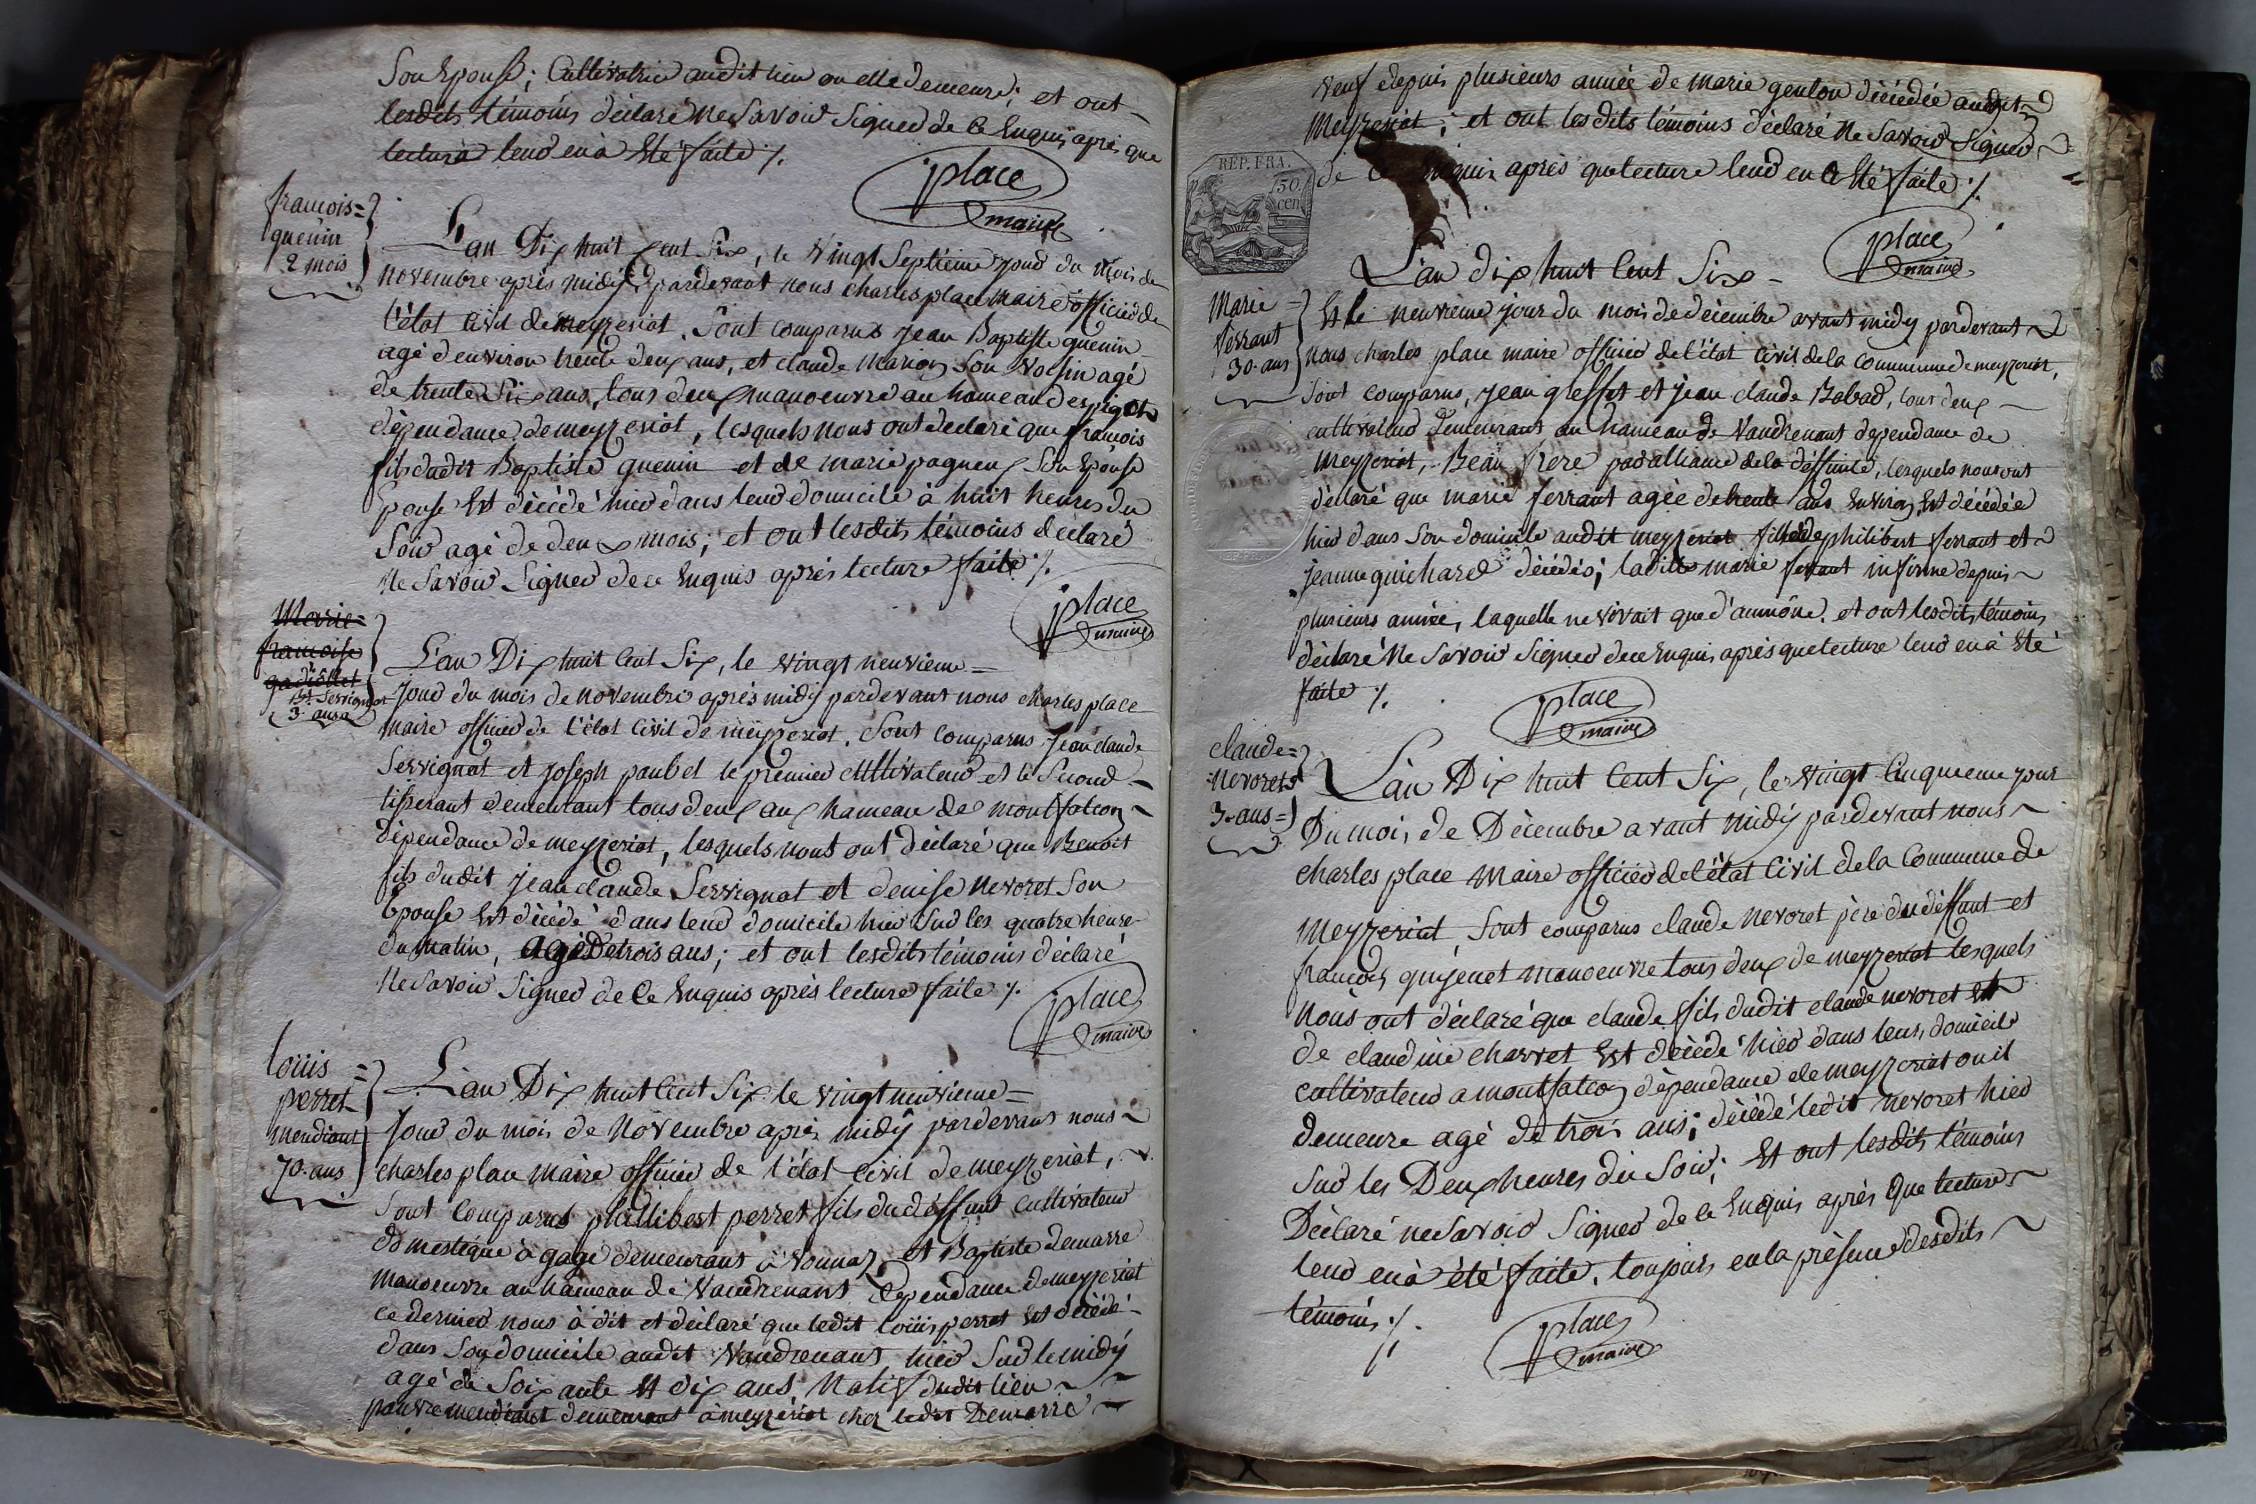 Son Epouse; Cultivatrice audit lieu ou elle demeure; et ont
lesdits témoins déclaré ne Savoir Signer de ce Enquis après que
lectura leur en à Eté faite ./.
place
maire
francois =
quenin
2 mois
L'an Dix huit Cent Six, le vingt Septième jour du mois de
novembre après midy, pardevant nous charles place maire officier de
l'état Civil de meyzeriat. Sont comparus jean Baptiste quenin
agé d'environ trente deux ans, et claude marion Son Voisin agé
de trente Six ans, tous deux manoeuvre au hameau
dépendance de meyzeriat, lesquels nous ont declaré que francois
fils dudit Baptiste quenin et de marie pagneux Son Epouse
pouse Est décédé hier dans leur domicile à huit heures du
Soir agé de deux mois; et ont lesdits témoins declaré
Ne Savoir Signer de ce Enquis après lecture faite ./.
place
maire
Marie =
francoise
gadiollet
Bt Servignat
3 ans
L'an Dix huit Cent Six, le vingt neuvieme =
jour du mois de novembre après midy pardevant nous charles place
maire officier de l'état Civil de meyzeriat. Sont comparus jean claude
Servignat et joseph paubel le premier Cultivateur et le Second
tisserant demeurant tous deux aux hameau de montfalcon
dépendance de meyzeriat, lesquels nous ont déclaré que Benoit
fils dudit jean claude Servignat et denise nevoret Son
Epouse Est décédé dans leur domicile hier Sur les quatre heure
du matin, agé De trois ans; et ont lesdits témoins déclaré
Ne Savoir Signer de Ce Enquis après lecture faite ./.
place
maire
loüis =
perret
mendiant
70. ans
L'an Dix huit Cent Six le vingt neuvieme =
jour du mois de Novembre après midy pardevant nous
charles place maire officier de l'état Civil de meyzeriat,
Sont Comparus phillibert perret fils du déffunt cultivateur
domestique à gage demeurant à Vonnaz, et Baptiste demarre
manoeuvre au hameau de Vaudrenant dépendance de meyzeriat
ce dernier nous à dit et déclaré que ledit loüis perret Est décédé
dans Son domicile audit Vaudrenant hier Sur le midy
agé de Soixante Et dix ans, Natif dudit lieu
pauvre mendiant demeurant à meyzériat chez ledit Demarre
veuf depuis plusieurs année de marie gentou décédée audit
Meyzeriat; et ont lesdits témoins déclaré Ne Savoir Signer
de Ce Enquis après que lecture leur en a Eté faite ./.
place
maire
REP. FRA.
50
cen
L'an dix huit Cent Six -
Marie =
ferrant
30. ans
Et le neuvieme jour du mois de décembre avant midy pardevant
nous charles place maire officier de l'état Civil de la commune de meyzeriat,
Sont comparus, jean greffet et jean claude Bobad, tous deux
cultivateur demeurants au hameau de Vaudrenant dépendance de
Meyzeriat, Beau frere par alliance de la déffunte, lesquels nous ont
déclaré que marie ferrant agée de trente ans Environ, Est décédée
hier dans Son domicile audit meyzeriat fille de philibert ferrant et
jeanne guichard décédés; ladite marie ferrant infirme depuis
plusieurs année, laquelle ne vivait que d'aumône. et ont lesdits témoins
déclaré Ne Savoir Signer de ce Enquis après que lecture leur en à Eté
faite ./.
place
maire
claude =
Nevoret
3. ans =
L'an Dix huit Cent Six, le vingt Cinquieme jour
Du mois de Décembre avant Midy pardevant nous
charles place Maire officier de l'état Civil de la Commune de
Meyzeriat, Sont comparus claude nevoret père du déffunt et
francois quijenet manoeuvre tous deux de meyzeriat lesquels
Nous ont déclaré que claude fils dudit claude nevoret Et
de claudine charvet Est décédé hier dans leurs domicile
cultivateur a montfalcon dépendance de meyzeriat ou il
demeure agé de trois ans; décédé ledit nevoret hier
Sur les Deux heures du Soir; Et ont lesdits témoins
Déclaré ne Savoir Signer de ce Enquis après Que lecture
leur en à été faite, toujours en la présence desdits
témoins ./.
place
maire